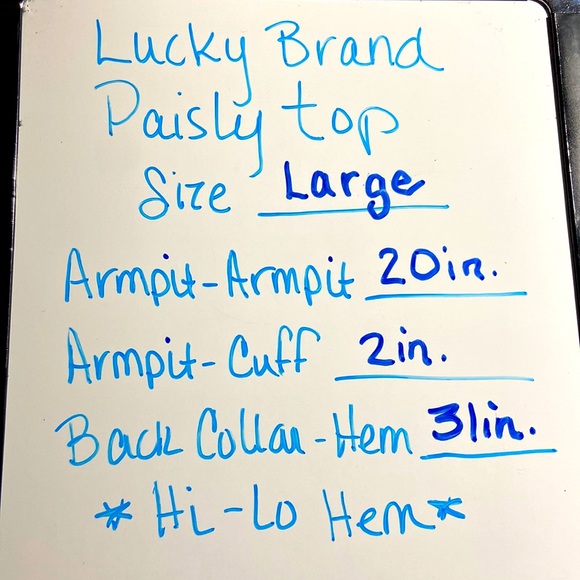 Lucky Brand
Paisly top
Size Large
Armpit-Armpit 20in.
Armpit-Cuff 2in.
Back Collar-Hem 31in.
*Hi-Lo Hem*